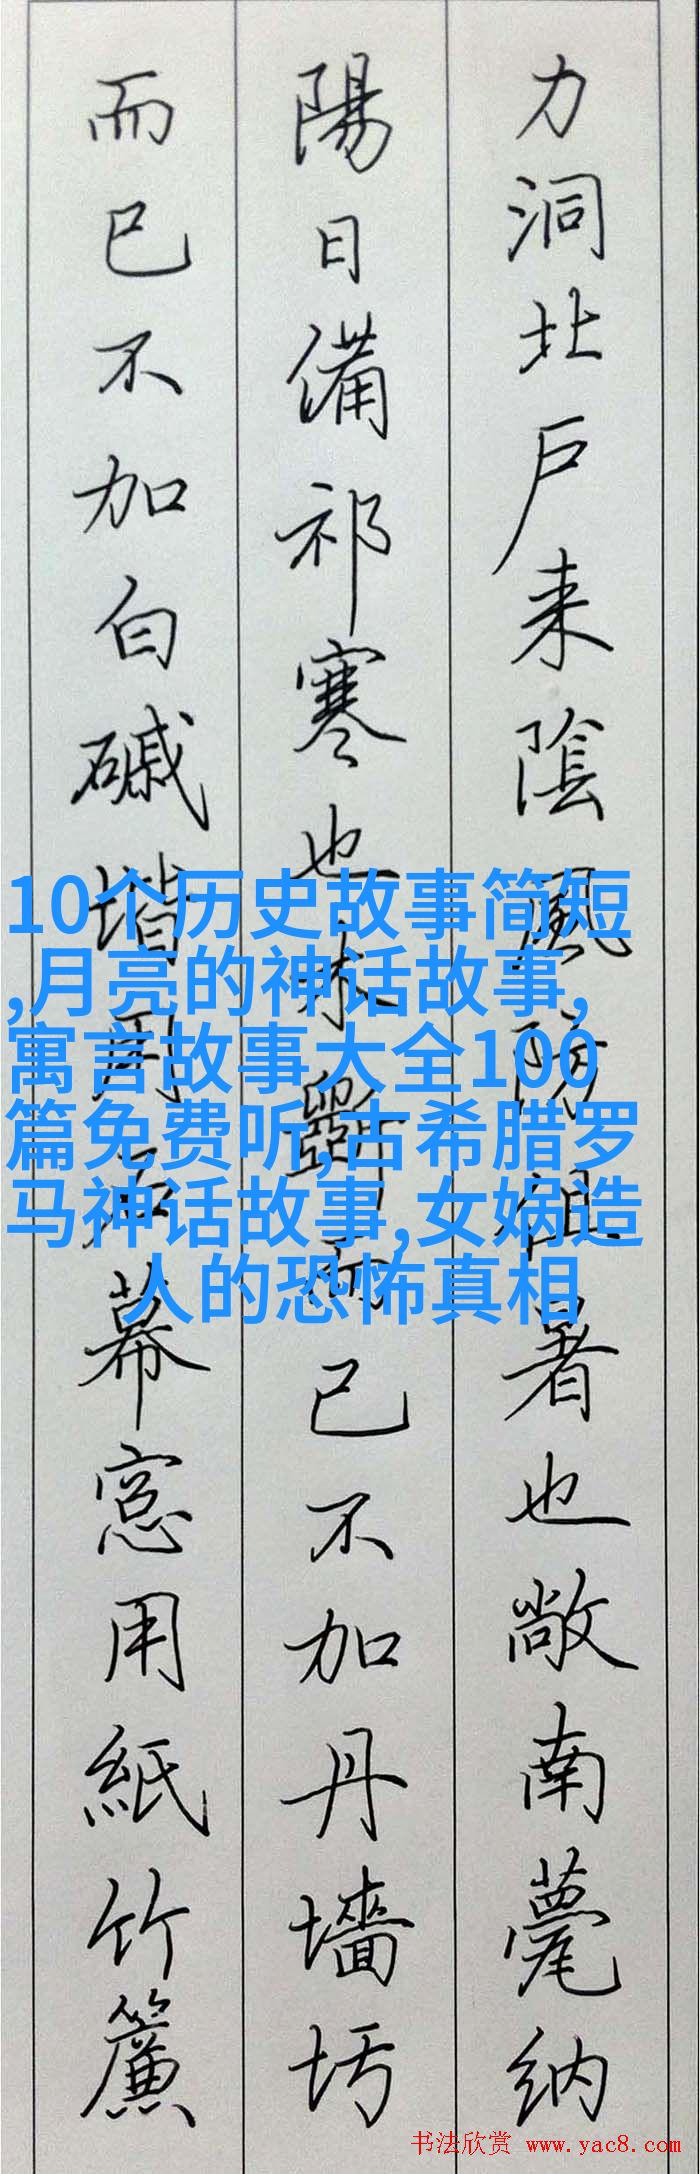 力洞北戶来陰風防徂暑也敞南甍纳
陽日備祁寒也木斵而已不加丹墻圬
而已不加白磩堦用石幕窓用紙竹簾
10个历史故事简短
,月亮的神话故事,
寓言故事大全100
篇免费听,古希腊罗
马神话故事,女娲造
人的恐怖真相
书法欣赏 www.yac8.com